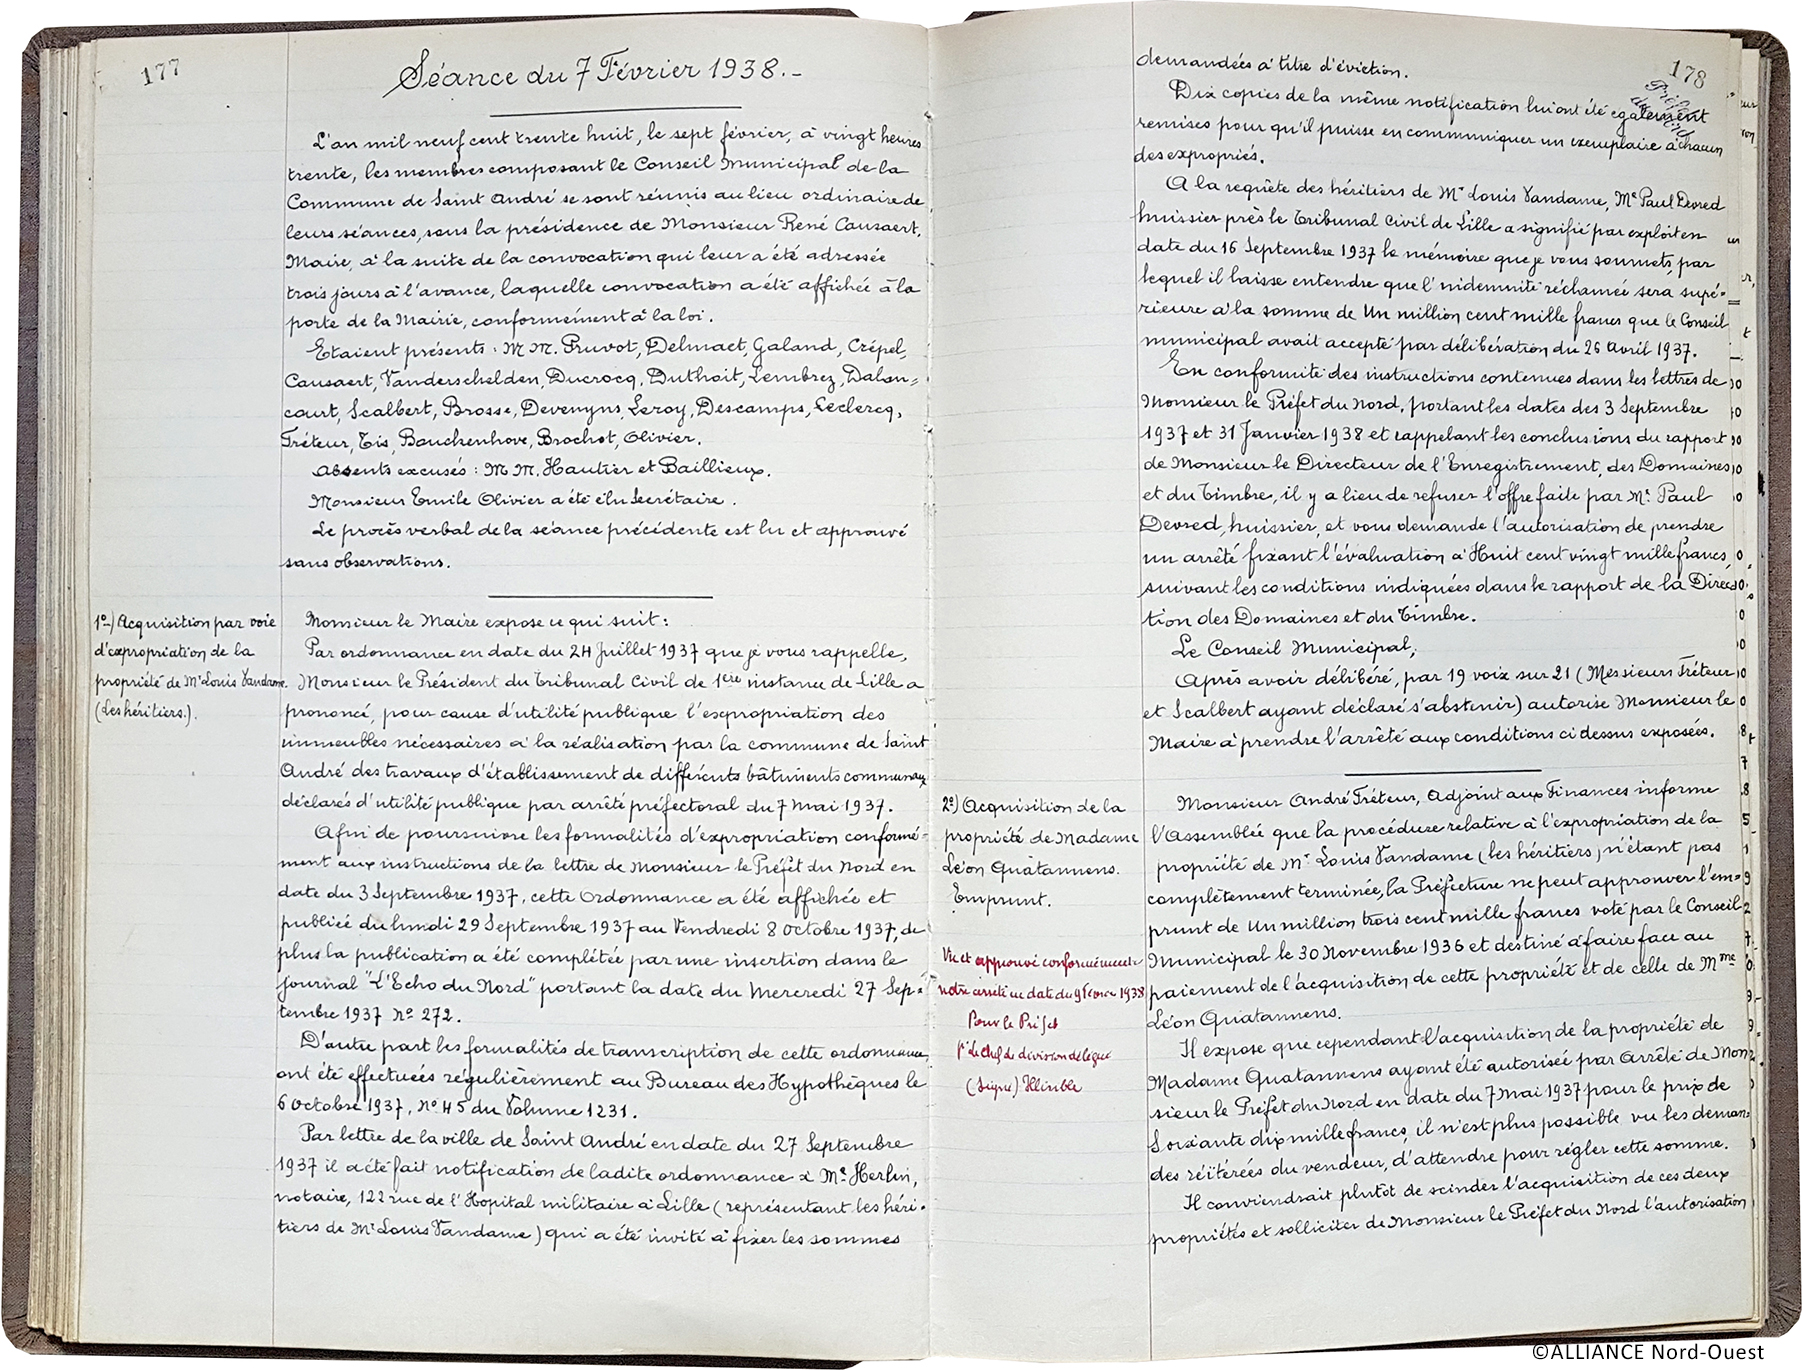 177
Séance du 7 Février 1938.-
L'an mil neuf cent trente huit, le sept février, à vingt heures
trente, les membres composant le Conseil Municipal de la
Commune de Saint André se sont réunis au lieu ordinaire de
leurs séances, sous la présidence de Monsieur René Causaert,
Maire, à la suite de la convocation qui leur a été adressée
trois jours à l'avance, laquelle convocation a été affichée à la
porte de la Mairie, conformément à la loi.
Etaient présents : M M. Pruvot, Delmaet, Galand, Crépel,
Causaert, Vanderschelden, Ducrocq, Duthoit, Lembrez, Dalen=
court, Scalbert, Brosse, Devenyns, Leroy, Descamps, Leclercq,
Fréteur, Tis, Bouchenhove, Brochot, Olivier.
Absents excusés : M M. Hautier et Baillieux.
Monsieur Emile Olivier a été élu Secrétaire.
Le procès verbal de la séance précédente est lu et approuvé
sans observations.
1º-) Acquisition par voie
d'expropriation de la
propriété de Mr Louis Vandame.
(Les héritiers.).
Monsieur le Maire expose ce qui suit :
Par ordonnance en date du 24 Juillet 1937 que je vous rappelle,
Monsieur le Président du Tribunal Civil de 1ère instance de Lille a
prononcé, pour cause d'utilité publique l'expropriation des
immeubles nécessaires à la réalisation par la commune de Saint
André des travaux d'établissement de différents bâtiments communaux
déclarés d'utilité publique par arrêté préfectoral du 7 Mai 1937.
Afin de poursuivre les formalités d'expropriation conformé=
ment aux instructions de la lettre de Monsieur le Préfet du Nord en
date du 3 Septembre 1937, cette Ordonnance a été affichée et
publiée du lundi 29 Septembre 1937 au Vendredi 8 Octobre 1937, de
plus la publication a été complétée par une insertion dans le
journal "L'Echo du Nord" portant la date du Mercredi 27 Sep=
tembre 1937 Nº 272.
D'autre part les formalités de transcription de cette ordonnance,
ont été effectuées régulièrement au Bureau des Hypothèques le
6 Octobre 1937, Nº 45 du Volume 1231.
Par lettre de la ville de Saint André en date du 27 Septembre
1937 il a été fait notification de ladite ordonnance à Me Herlin,
notaire, 122 rue de l'Hopital militaire à Lille (représentant les héri-
tiers de Mr Louis Vandame) qui a été invité à fixer les sommes
178
Préfet
du Nord
demandées à titre d'éviction.
Dix copies de la même notification lui ont été egalement
remises pour qu'il puisse en communiquer un exemplaire à chacun
des expropriés.
A la requête des héritiers de Mr Louis Vandame, Me Paul Devred
huissier près le Tribunal Civil de Lille a signifié par exploit en
date du 16 Septembre 1937 le mémoire que je vous soumets, par
lequel il laisse entendre que l'indemnité réclamée sera supé=
rieure à la somme de Un million cent mille francs que le Conseil
municipal avait accepté par délibération du 26 Avril 1937.
En conformité des instructions contenues dans les lettres de
Monsieur le Préfet du Nord, portant les dates des 3 Septembre
1937 et 31 Janvier 1938 et rappelant les conclusions du rapport
de Monsieur le Directeur de l'Enregistrement, des Domaines
et du Timbre, il y a lieu de refuser l'offre faite par Me Paul
Devred, huissier, et vous demande l'autorisation de prendre
un arrêté fixant l'évaluation à Huit cent vingt mille francs,
suivant les conditions indiquées dans le rapport de la Direc
tion des Domaines et du Timbre.
Le Conseil Municipal,
Après avoir délibéré, par 19 voix sur 21 (Messieurs Fréteur
et Scalbert ayant déclaré s'abstenir) autorise Monsieur le
Maire à prendre l'arrêté aux conditions ci dessus exposées.
2º) Acquisition de la
propriété de Madame
Léon Quatannens.
Emprunt.
Vu et approuvé conformément à
notre arrêté en date du 9 Février 1938
Pour le Préfet
Le chef de division délégué
(Signé) Illisible
Monsieur André Fréteur, Adjoint aux Finances informe
l'Assemblée que la procédure relative à l'expropriation de la
propriété de Mr Louis Vandame (les héritiers) n'étant pas
complètement terminée, la Préfecture ne peut approuver l'em=
prunt de Un million trois cent mille francs voté par le Conseil
Municipal le 30 Novembre 1936 et destiné à faire face au
paiement de l'acquisition de cette propriété et de celle de Mme
Léon Quatannens.
Il expose que cependant l'acquisition de la propriété de
Madame Quatannens ayant été autorisée par Arrêté de Mon
sieur le Préfet du Nord en date du 7 Mai 1937 pour le prix de
Soixante dix mille francs, il n'est plus possible vu les deman=
des réitérées du vendeur, d'attendre pour régler cette somme.
Il conviendrait plutôt de scinder l'acquisition de ces deux
propriétés et solliciter de Monsieur le Préfet du Nord l'autorisation
©ALLIANCE Nord-Ouest